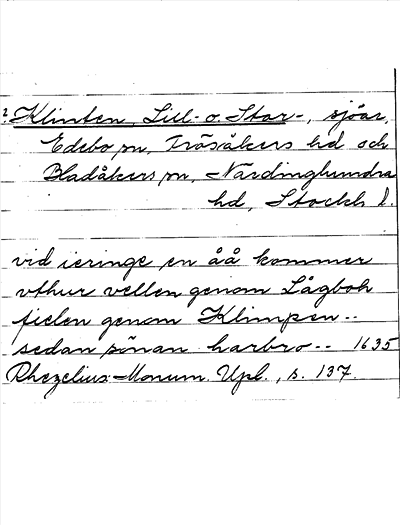 ? Klinten, Lill- o. Stor-, sjöar,
Edebo sn, Frösåkers hd och
Bladåkers sn, Närdinghundra
hd, Stockh l.
vid ieringe en åå kommer
vthur vellen genom Lågboh
fielen genom Klimpen --
sedan sönan harbro -- 1635
Rhezelius Monum. Upl., s. 137.